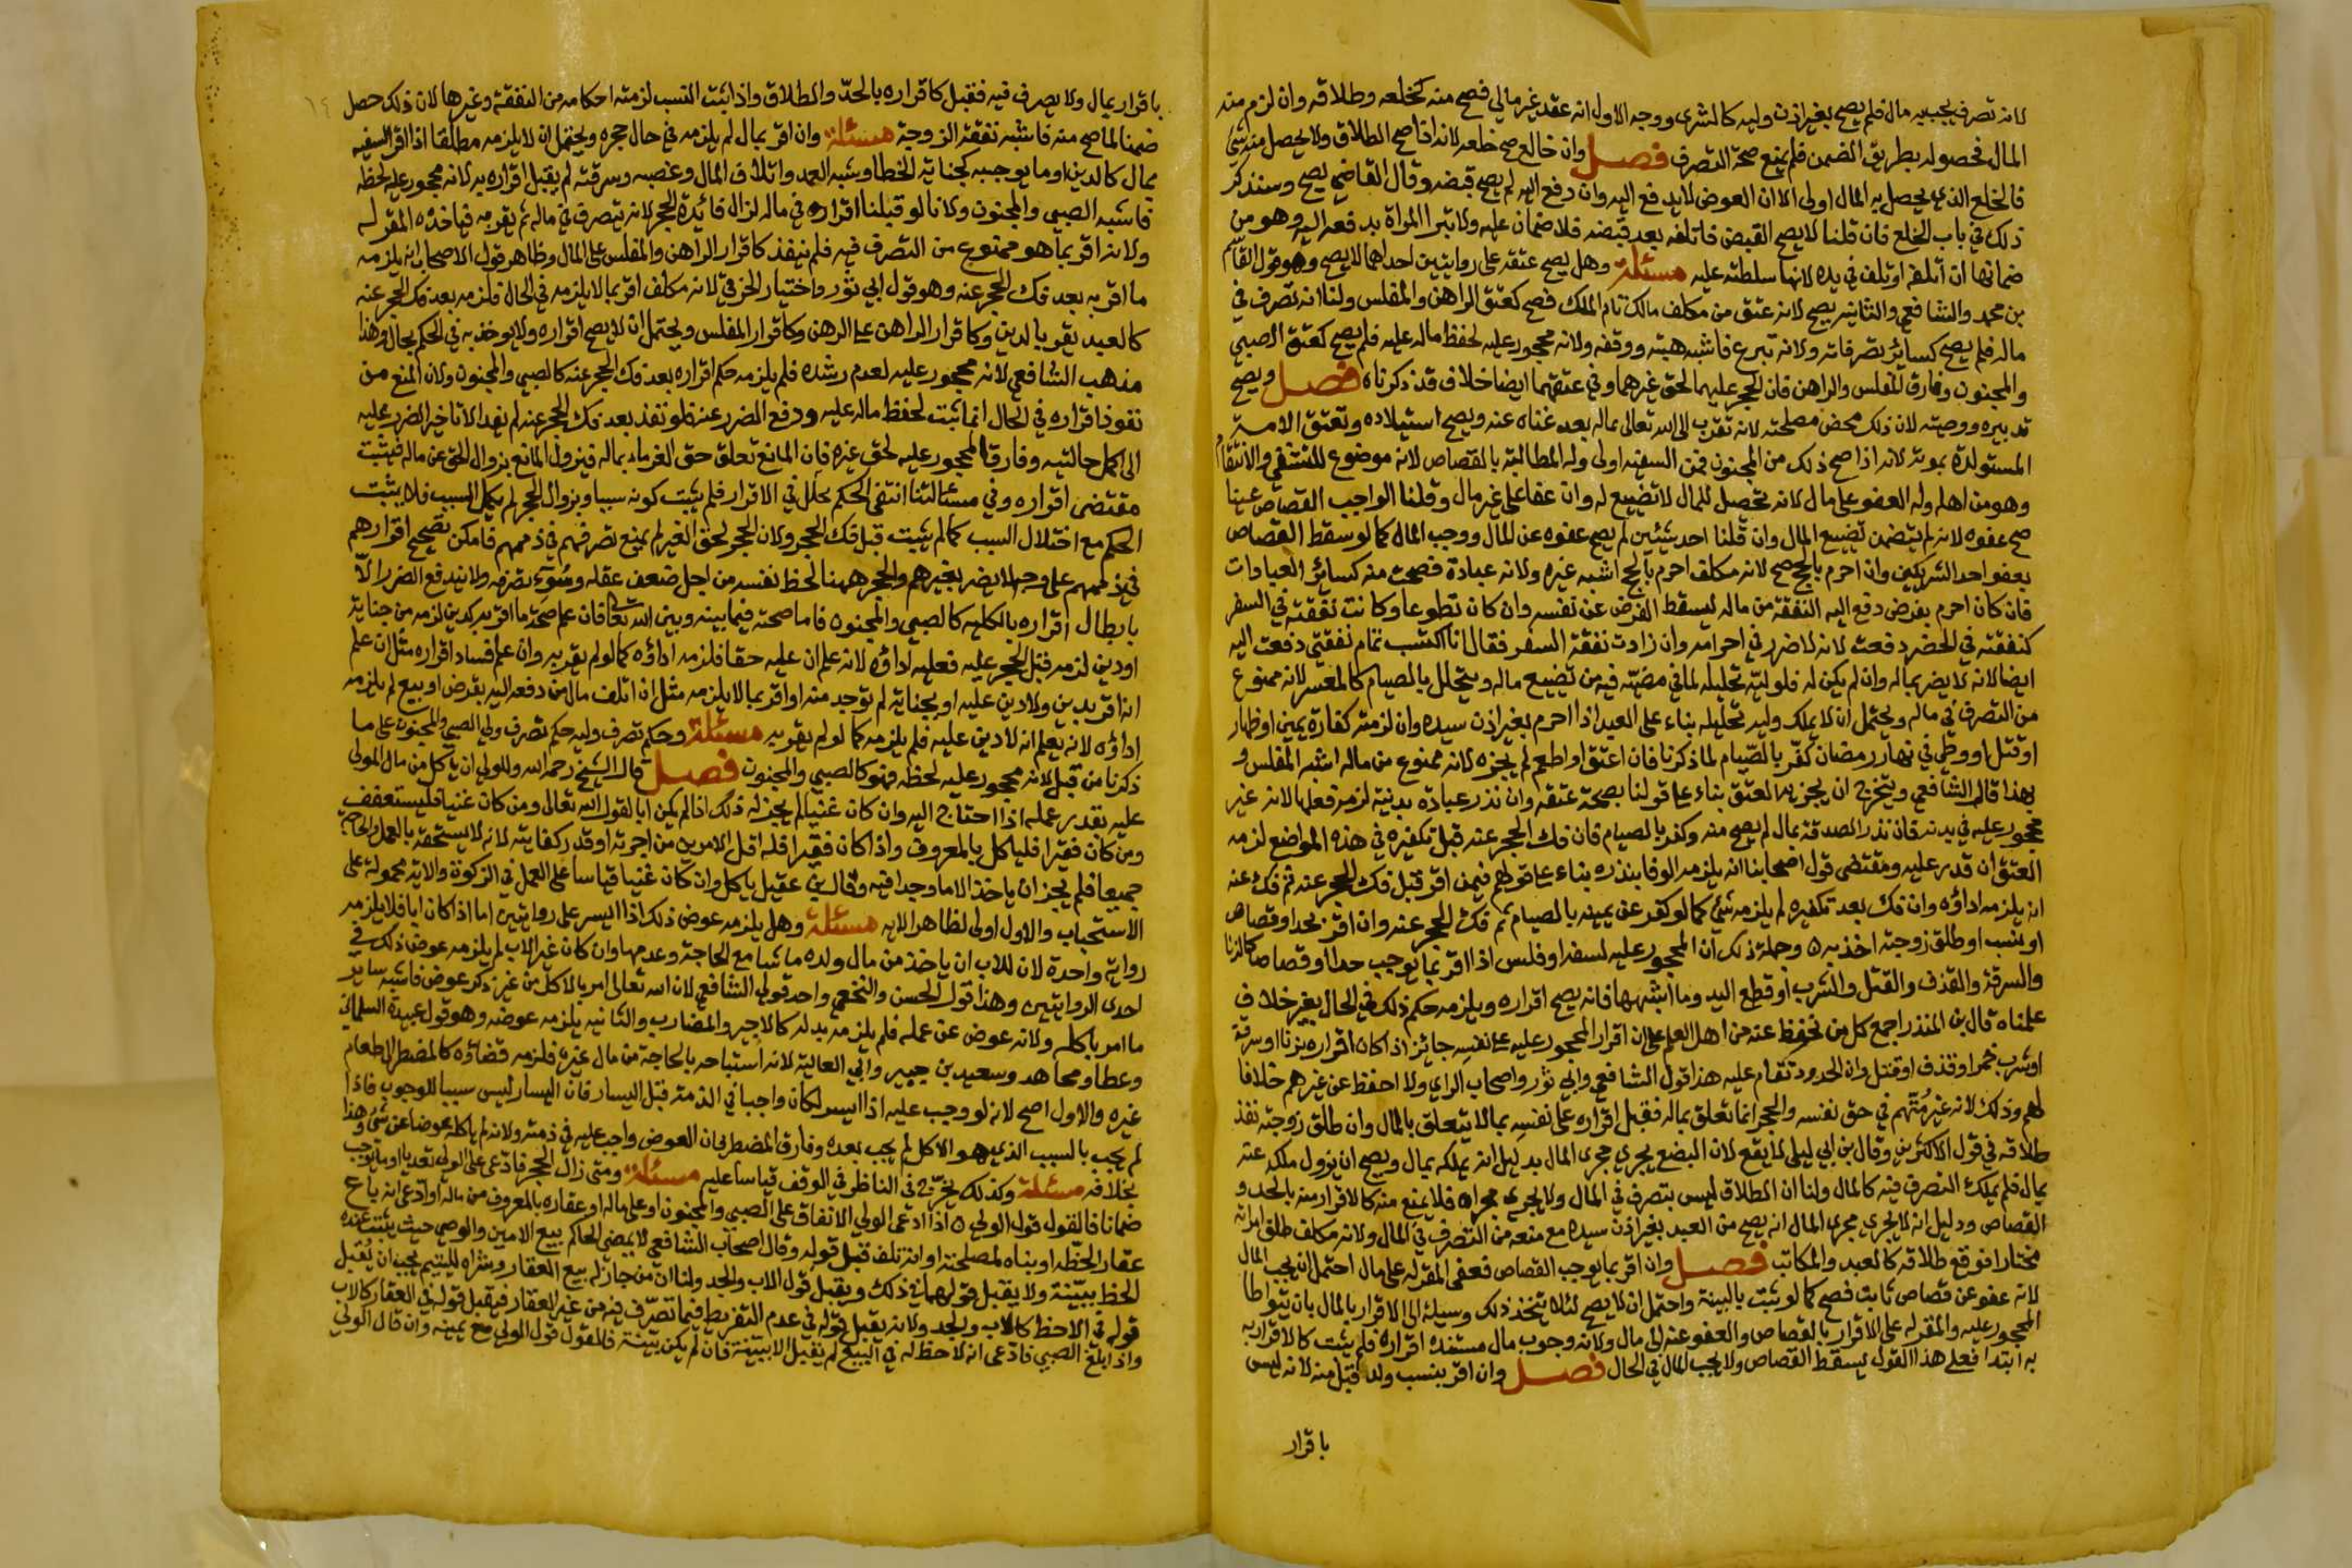 لانه تصرف يجب به مال فلم يصح بغير اذن وليه كالشرى ووجه الاول انه عقد غير مالي فصح منه كخلعه وطلاقه وان لزم منه
المال فحصوله بطريق الضمن فلم يمنع صحة التصرف فصل وان خالع صح خلعه لانه اذا صح الطلاق ولا يحصل منه شئ
فالخلع الذي يحصل به المال اولى الا ان العوض لا يدفع اليه وان دفع اليه لم يصح قبضه وقال القاضي يصح وسنذكر
ذلك في باب الخلع فان قلنا لا يصح القبض فاتلفه بعد قبضه فلا ضمان عليه ولا تبرا المراة بدفعه اليه وهو من
ضمانها ان اتلفه او تلف في يده لانها سلطته عليه مسئلة وهل يصح عتقه على روايتين احداهما لا يصح وهو قول القاسم
بن محمد والشافعي والثانيه يصح لانه عتق من مكلف مالك تام الملك فصح كعتق الراهن والمفلس ولنا انه تصرف في
ماله فلم يصح كسائر تصرفاته ولانه تبرع فاشبه هبته ووقفه ولانه محجور عليه لحفظ ماله عليه فلم يصح كعتق الصبي
والمجنون وفارق المفلس والراهن فان الحجر عليهما لحق غيرهما وفي عتقهما ايضا خلاف قد ذكرناه فصل ويصح
تدبيره ووصيته لان ذلك محض مصلحته لانه تقرب الى الله تعالى بماله بعد غناه عنه ويصح استيلاده وتعتق الامة
المستولدة بموته لانه اذا صح ذلك من المجنون فمن السفيه اولى وله المطالبة بالقصاص لانه موضوع للتشفي والانتقام
وهو من اهله وله العفو على مال لانه تحصيل للمال لا تضييع له وان عفا على غير مال وقلنا الواجب القصاص عينا
صح عفوه لانه لم يتضمن تضييع المال وان قلنا احد شيئين لم يصح عفوه عن المال ووجب المال كما لو سقط القصاص
بعفو احد الشريكين وان احرم بالحج صح لانه مكلف احرم بالحج اشبه غيره ولانه عبادة فصحت منه كسائر العبادات
فان كان احرم بفرض دفع اليه النفقة من ماله ليسقط الفرض عن نفسه وان كان تطوعا وكانت نفقته في السفر
كنفقته في الحضر دفعت لانه لا ضرر في احرامه وان زادت نفقة السفر فقال انا اكتسب تمام نفقتي دفعت اليه
ايضا لانه لا يضر بماله وان لم يكن له فلوليه تحليله لما في مضيه فيه من تضييع ماله ويتحلل بالصيام كالمعسر لانه ممنوع
من التصرف في ماله ويحتمل ان لا يملك وليه تحليله بناء على العبد اذا احرم بغير اذن سيده وان لزمته كفارة يمين او ظهار
او قتل او وطئ في نهار رمضان كفر بالصيام لما ذكرنا فان اعتق او اطعم لم يجزه لانه ممنوع من ماله اشبه المفلس و
بهذا قال الشافعي ويتخرج ان يجزيه العتق بناء على قولنا بصحة عتقه وان نذر عبادة بدنية لزمه فعلها لانه غير
محجور عليه في بدنه فان نذر الصدقة بمال لم يصح منه وكفر بالصيام فان فك الحجر عنه قبل تكفيره في هذه المواضع لزمه
العتق ان قدر عليه ومقتضى قول اصحابنا انه يلزمه الوفا بنذره بناء على قولهم فيمن اقر قبل فك الحجر عنه ثم فك عنه
انه يلزمه اداؤه وان فك بعد تكفيره لم يلزمه شئ كما لو كفر عن يمينه بالصيام ثم فك الحجر عنه وان اقر بحد او قصاص
او بنسب او طلق زوجته اخذ به وجملة ذلك ان المحجور عليه لسفه او فلس اذا اقر بما يوجب حدا او قصاصا كالزنا
والسرقة والقذف والقتل والشرب او قطع اليد وما اشبهها فانه يصح اقراره ويلزمه حكم ذلك في الحال بغير خلاف
علمناه قال بن المنذر اجمع كل من نحفظ عنه من اهل العلم على ان اقرار المحجور عليه على نفسه جائز اذا كان اقراره بزنا او سرقة
او شرب خمر او قذف او قتل وان الحدود تقام عليه هذا قول الشافعي وابي ثور واصحاب الراي ولا احفظ عن غيرهم خلافا
لهم وذلك لانه غير متهم في حق نفسه والحجر انما تعلق بماله فقبل اقراره على نفسه بما لا يتعلق بالمال وان طلق زوجته نفذ
طلاقه في قول الاكثرين وقال بن ابي ليلى لا يقع لان البضع يجري مجرى المال بدليل انه يملكه بمال ويصح ان يزول ملكه عنه
بمال فلم يملك التصرف فيه كالمال ولنا ان الطلاق ليس بتصرف في المال ولا يجري مجراه فلا يمنع منه كالاقرار منه بالحد و
القصاص ودليل انه لا يجري مجرى المال انه يصح من العبد بغير اذن سيده مع منعه من التصرف في المال ولانه مكلف طلق امراته
مختارا فوقع طلاقه كالعبد والمكاتب فصل وان اقر بما يوجب القصاص فعفى المقر له على مال احتمل ان يجب المال
لانه عفو عن قصاص ثابت فصح كما لو ثبت بالبينة واحتمل ان لا يصح لئلا يتخذ ذلك وسيلة الى الاقرار بالمال بان يتواطا
المحجور عليه والمقر له على الاقرار بالقصاص والعفو عنه الى مال ولانه وجوب مال مستنده اقراره فلم يثبت كالاقرار به
به ابتدا فعلى هذا القول يسقط القصاص ولا يجب المال في الحال فصل وان اقر بنسب ولد قبل منه لانه ليس
باقرار
باقرار بمال ولا تصرف فيه فقبل كاقراره بالحد والطلاق واذا اثبت النسب لزمته احكامه من النفقة وغيرها لان ذلك حصل
ضمنا لما صح منه فاشبه نفقة الزوجة مسئلة وان اقر بمال لم يلزمه في حال حجره ويحتمل ان لا يلزمه مطلقا اذا اقر السفيه
بمال كالدين او ما يوجبه كجناية الخطا وشبه العمد واتلاف المال وغصبه وسرقته لم يقبل اقراره به لانه محجور عليه لحظه
فاشبه الصبي والمجنون ولانا لو قبلنا اقراره في ماله لزال فائدة الحجر لانه يتصرف في ماله ثم يقر به فياخذه المقر له
ولانه اقر بما هو ممنوع من التصرف فيه فلم ينفذ كاقرار الراهن والمفلس على المال وظاهر قول الاصحاب انه يلزمه
ما اقر به بعد فك الحجر عنه وهو قول ابي ثور واختيار الخرقي لانه مكلف اقر بما لا يلزمه في الحال فلزمه بعد فك الحجر عنه
كالعبد يقر بالدين وكاقرار الراهن على الرهن وكاقرار المفلس ويحتمل ان لا يصح اقراره ولا يوخذ به في الحكم بحال وهذا
مذهب الشافعي لانه محجور عليه لعدم رشده فلم يلزمه حكم اقراره بعد فك الحجر عنه كالصبي والمجنون ولان المنع من
نفوذ اقراره في الحال انما ثبت لحفظ ماله عليه ودفع الضرر عنه فلو نفذ بعد فك الحجر عنه لم يفد الا تاخير الضرر عليه
الى اكمل حالتيه وفارق المحجور عليه لحق غيره فان المانع تعلق حق الغرماء بماله فيزول المانع بزوال الحق عن ماله فيثبت
مقتضى اقراره وفي مسئلتنا انتفى الحكم بخلل في الاقرار فلم يثبت كونه سببا وبزوال الحجر لم يكمل السبب فلا يثبت
الحكم مع اختلال السبب كما لم يثبت قبل فك الحجر ولان الحجر لحق الغير لم يمنع تصرفهم في ذممهم فامكن تصحيح اقرارهم
في ذممهم على وجه لا يضر بغيرهم والحجر ههنا لحظ نفسه من اجل ضعف عقله وسوء تصرفه ولا يندفع الضرر الا
بابطال اقراره بالكلية كالصبي والمجنون فاما صحته فيما بينه وبين الله تعالى فان علم صحة ما اقر به كدين لزمه من جناية
او دين لزمه قبل الحجر عليه فعليه اداؤه لانه علم ان عليه حقا فلزمه اداؤه كما لو لم يقر به وان علم فساد اقراره مثل ان علم
انه اقر بدين ولا دين عليه او بجناية لم توجد منه او اقر بما لا يلزمه مثل ان اتلف مال من دفعه اليه بقرض او بيع لم يلزمه
اداؤه لانه يعلم انه لا دين عليه فلم يلزمه كما لو لم يقر به مسئلة وحكم تصرف وليه حكم تصرف ولي الصبي والمجنون على ما
ذكرنا من قبل لانه محجور عليه لحظه فهو كالصبي والمجنون فصل قال الشيخ رحمه الله وللولي ان ياكل من مال المولى
عليه بقدر عمله اذا احتاج اليه وان كان غنيا لم يجز له ذلك اذا لم يكن ابا لقول الله تعالى ومن كان غنيا فليستعفف
ومن كان فقيرا فلياكل بالمعروف واذا كان فقيرا فله اقل الامرين من اجرته او قدر كفايته لانه لا يستحقه بالعمل والحاجة
جميعا فلم يجز ان ياخذ الا ما وجدا فيه وقال بن عقيل ياكل وان كان غنيا قياسا على العمل في الزكوة والاية محمولة على
الاستحباب والاول اولى لظاهر الاية مسئلة وهل يلزمه عوض ذلك اذا ايسر على روايتين اما اذا كان ابا فلا يلزمه
رواية واحدة لان للاب ان ياخذ من مال ولده ما شا مع الحاجة وعدمها وان كان غير الاب لم يلزمه عوض ذلك في
احدى الروايتين وهذا قول الحسن والنخعي واحد قولي الشافعي لان الله تعالى امر بالاكل من غير ذكر عوض فاشبه ساير
ما امر باكله ولانه عوض عن عمله فلم يلزمه بدله كالاجير والمضارب والثانيه يلزمه عوضه وهو قول عبيدة السلماني
وعطا ومجاهد وسعيد بن جبير وابي العالية لانه استباحه بالحاجة من مال غيره فلزمه قضاؤه كالمضطر الى طعام
غيره والاول اصح لانه لو وجب عليه اذا ايسر لكان واجبا في الذمة قبل اليسار فان اليسار ليس سببا للوجوب فاذا
لم يجب بالسبب الذي هو الاكل لم يجب بعده وفارق المضطر فان العوض واجب عليه في ذمته ولانه لم ياكله عوضا عن شئ وهذا
بخلافه مسئلة وكذلك يخرج في الناظر في الوقف قياسا عليه مسئلة ومتى زال الحجر فادعى على الولي تعديا او ما يوجب
ضمانا فالقول قول الولي اذا ادعى الولي الانفاق على الصبي والمجنون او على ماله او عقاره بالمعروف من ماله او ادعى انه باع
عقاره لحظه او بناه لمصلحته او انه تلف قبل قوله وقال اصحاب الشافعي لا يمضي الحاكم بيع الامين والوصي حيث يثبت عنده
الحظ ببينة ولا يقبل قولهما في ذلك ويقبل قول الاب والجد ولنا ان من جاز له بيع العقار وشراه لليتيم يجب ان يقبل
قوله في الاحظ كالاب والجد ولانه يقبل قوله في عدم التفريط فيما تصرف فيه من غير العقار فيقبل قوله في العقار كالاب
واذا بلغ الصبي فادعى انه لا حظ له في البيع لم يقبل الا ببينة فان لم يكن بينة فالقول قول الولي مع يمينه وان قال الولي